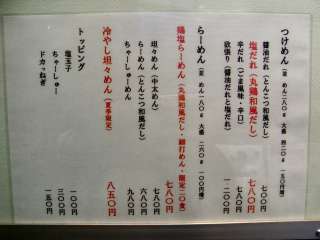 つけめん（並 めん二八〇g 大盛 四二〇g 一五〇円増）
醤油だれ（とんこつ和風だし） 七〇〇円
塩だれ（丸鶏和風だし） 七八〇円
辛だれ（ごま風味・辛口） 七八〇円
欲張り（醤油だれと塩だれ） 一二〇〇円
らーめん（並 めん一八〇g 大盛 二六〇g 一〇〇円増）
鶏塩らーめん（丸鶏和風だし・細打めん・限定20食） 七八〇円
坦々めん（中太めん） 七八〇円
らーめん（とんこつ和風だし） 六八〇円
ちゃーしゅーめん 九八〇円
冷やし坦々めん（夏季限定） 八五〇円
トッピング
塩玉子 一〇〇円
ちゃーしゅー 三〇〇円
ドカッねぎ 一五〇円